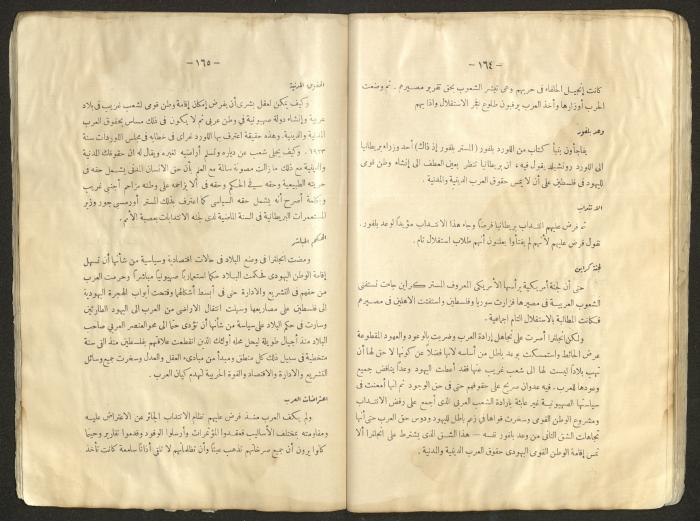 — ١٦٤ —
كانت إنجيل الحلفاء في حربهم وهي تبشر الشعوب بحق تقرير مصيرهم . ثم وضعت
الحرب أوزارها وأخذ العرب يرقبون طلوع فجر الاستقلال واذا بهم
وعد بلفور
يفاجأون بنبأ كتاب من اللورد بلفور ( المستر بلفور إذ ذاك ) أحد وزراء بريطانيا
الى اللورد روتشيلد يقول فيه ان بريطانيا تنظر بعين العطف الى إنشاء وطن قومى
لليهود فى فلسطين على أن لا يمس حقوق العرب الدينية والمدنية .
الانتداب
ثم فرض عليهم انتداب بريطانيا فرضاً وجاء هذا الانتداب مؤيداً لوعد بلفور .
نقول فرض عليهم لأنهم لم يفتأوا يعلنون أنهم طلاب استقلال تام .
لجنة كراين
حتى أن لجنة أمريكية يرأسها الأمريكى المعروف المستر كراين جاءت تستفتى
الشعوب العربية فى مصيرها فزارت سوريا وفلسطين واستفتت الاهلين فى مصيرهم
فكانت المطالبة بالاستقلال التام اجماعية .
ولكن انجلترا أصرت على تجاهل إرادة العرب وضربت بالوعود والعهود المقطوعة
عرض الحائط واستمسكت بوعد باطل من أساسه لانها فضلا عن كونها لا حق لها أن
تهب بلاداً ليست لها الى شعب غريب عنها فقد أعطت اليهود وعداً يناقض جميع
وعودها للعرب . فيه عدوان صريح على حقوقهم حتى فى حق الوجود ثم انها أمعنت فى
سياستها الصهيونية غير عابئة بارادة الشعب العربى الذى أجمع على رفض الانتداب
ومشروع الوطن القومى وسخرت قواها فى زعم باطل لليهود ودوس حق العرب حتى أنها
تجاهلت الشق الثانى من وعد بلفور نفسه — هذا الشق الذى يشترط على انجلترا ألا
تمس إقامة الوطن القومى اليهودى حقوق العرب الدينية والمدنية .
— ١٦٥ —
الحقوق المدنية
وكيف يمكن لعقل بشرى أن يفرض إمكان إقامة وطن قومى لشعب غريب فى بلاد
عربية وإنشاء دولة صهيونية فى وطن عربى ثم لا يكون فى ذلك مساس بحقوق العرب
المدنية والدينية . وهذه حقيقة اعترف بها اللورد غراى فى خطابه فى مجلس اللوردات سنة
١٩٢٣ . وكيف يجلى شعب عن دياره وتسلم أراضيه لغيره ويقال له ان حقوقك المدنية
والدينية مع ذلك ما زالت مصونة سالمة مع العلم بأن حق الانسان المدنى يشمل حقه فى
حريته الطبيعية وحقه فى الحكم وحقه فى ألا يزاحمه على وطنه مزاحم أجنبى غريب
وبكلمة أصرح أنه يشمل حقه السياسى كما اعترف بذلك المستر أورمسبى جور وزير
المستعمرات البريطانية فى السنة الماضية لدى لجنة الانتدابات بعصبة الأمم .
الحكم المباشر
ومضت انجلترا فى وضع البلاد فى حالات اقتصادية وسياسية من شأنها أن تسهل
إقامة الوطن اليهودى فحكمت البلاد حكما استعمارياً صهيونياً مباشراً وحرمت العرب
من حقهم فى التشريع والادارة حتى فى أبسط أشكالها وفتحت أبواب الهجرة اليهودية
الى فلسطين على مصاريعها وسهلت انتقال الاراضى من العرب الى اليهود الطارئين
وسارت فى حكم البلاد على سياسة من شأنها أن تؤدى حتما الى محو العنصر العربى صاحب
البلاد منذ أجيال طويلة ليحل محله أولئك الذين انقطعت علاقتهم بفلسطين منذ الفى سنة
متخطية فى سبيل ذلك كل منطق ومبدأ من مبادىء العقل والعدل وسخرت جميع وسائل
التشريع والادارة والاقتصاد والقوة الحربية لهدم كيان العرب .
اعتراضات العرب
ولم يكف العرب منذ فرض عليهم نظام الانتداب الجائر عن الاعتراض عليه
ومقاومته بمختلف الأساليب فعقدوا المؤتمرات وأرسلوا الوفود وقدموا تقارير وحينما
كانوا يرون أن جميع صرخاتهم تذهب عبثاً وأن تظلماتهم لا تلقى آذاناً سامعة كانت تأخذ